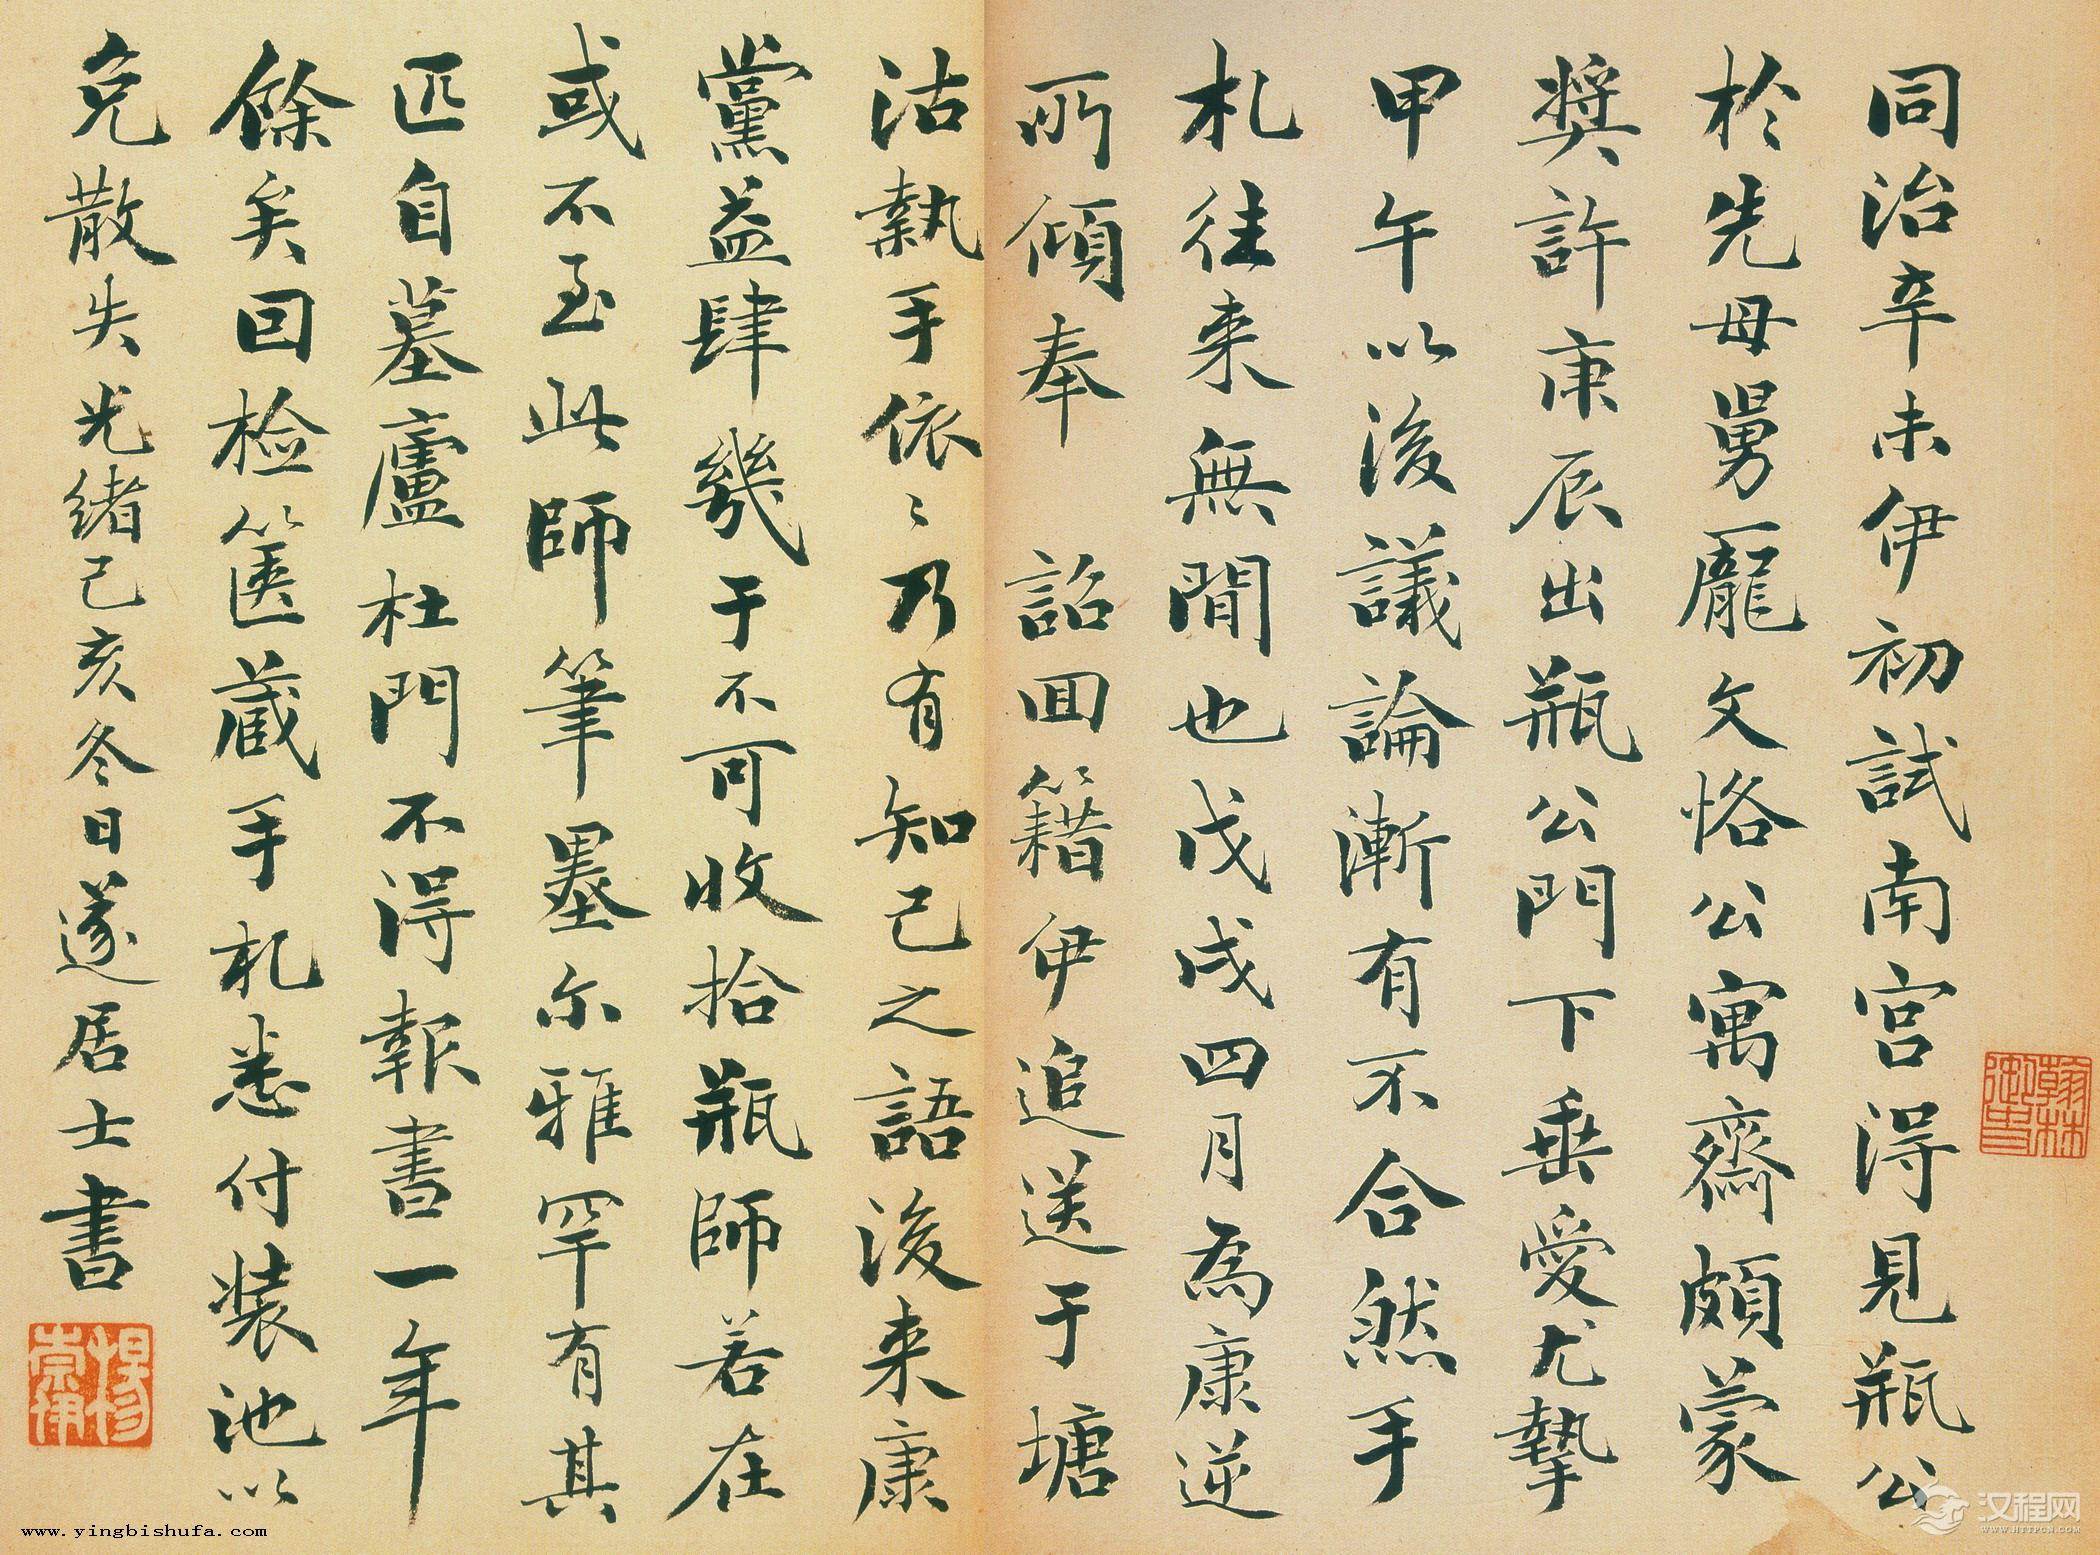 同治辛未伊初試南宮得見瓶公
於先母舅龐文恪公寓齋頗蒙
獎許庚辰出瓶公門下垂愛尤摯
甲午以後議論漸有不合然手
札往來無間也戊戌四月為康逆
所傾奉 詔回籍伊追送于塘
沽執手依〻乃有知己之語後来康
黨益肆幾于不可收拾瓶師若在
或不至此師筆墨尔雅罕有其
匹自墓廬杜門不得報書一年
餘矣回檢篋蔵手札悉付装池以
免散失光緒己亥冬日遂居士書
翰林御史
楊崇伊
www.yingbishufa.com
汉程网
WWW.HTTPCN.COM